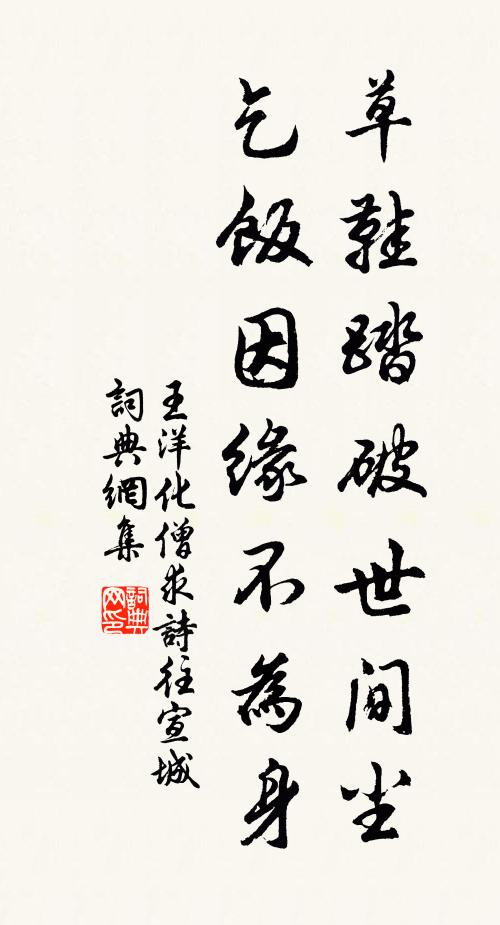 草鞋踏破世间尘
乞飯因緣不為身
王洋化僧求詩往宣城
詞典網集
詞典网印